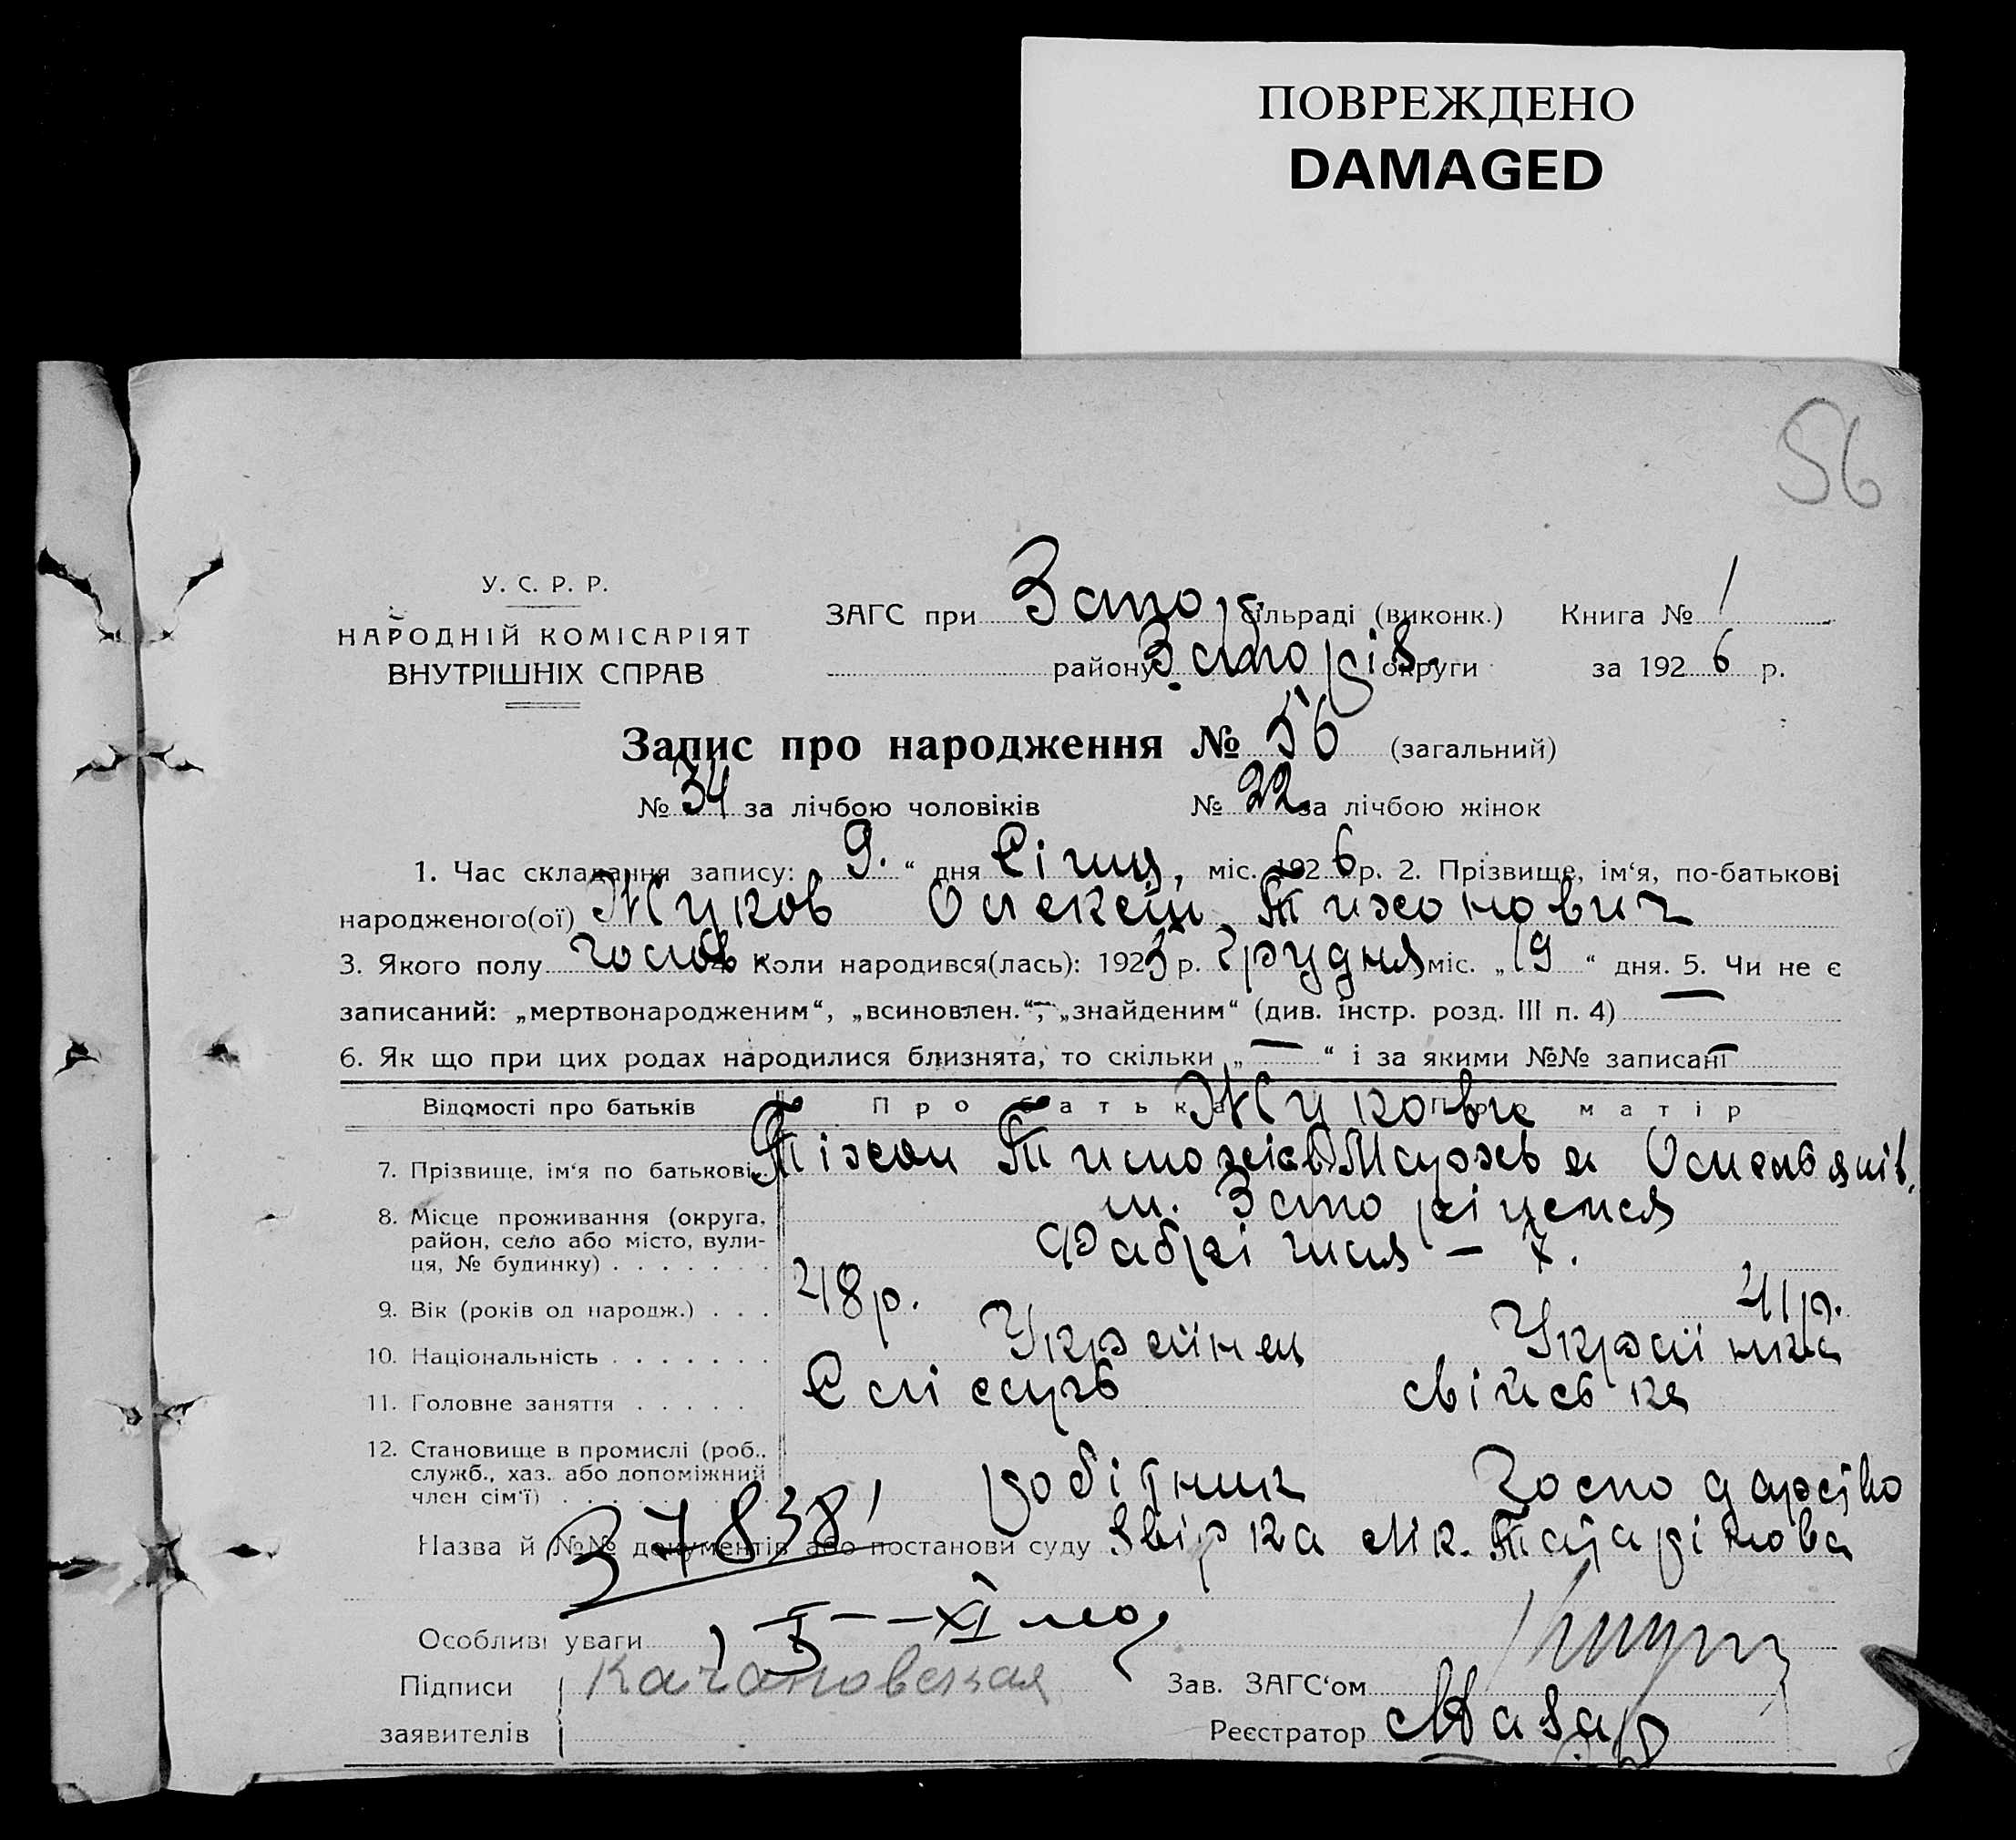 ПОВРЕЖДЕНО
DAMAGED
56
У. С. Р. Р.
НАРОДНІЙ КОМІСАРІЯТ
ВНУТРІШНІХ СПРАВ
ЗАГС при Запор. сільраді (виконк.) Книга № 1
району Запоріз. округи за 1926 р.
Запис про народження № 56 (загальний)
№ 34 за лічбою чоловіків № 22 за лічбою жінок
1. Час складання запису: 9. “ дня Січня, міс. 1926 р. 2. Прізвище, ім‘я, по-батькові
народженого(ої) Жуков Олексій Тихонович
3. Якого полу чолов. Коли народився(лась): 1925 р. Грудня міс. „19“ дня. 5. Чи не є
записаний: „мертвонародженим“, „всиновлен.“, „знайденим“ (див. інстр. розд. III п. 4) —
6. Як що при цих родах народилися близнята, то скільки „—“ і за якими №№ записані —
Відомості про батьків Про батька Про матір
Жукови
7. Прізвище, ім‘я по батькові Тіхон Тимохів Марья
8. Місце проживання (округа, район, село або місто, вулиця, № будинку) м. Запоріжжя
Фабрічная – 7.
9. Вік (років од народж.) 48 р. 41 р.
10. Національність Українец Українка
11. Головне заняття Слісарь свійська
12. Становище в промислі (роб., служб., хаз. або допоміжний член сім‘ї) робітник господарство
37838
Назва й №№ документів або постанови суду Звірка Мк. Татарінова
Особливі уваги
Підписи заявителів Качановская
Зав. ЗАГС‘ом
Реєстратор Назар